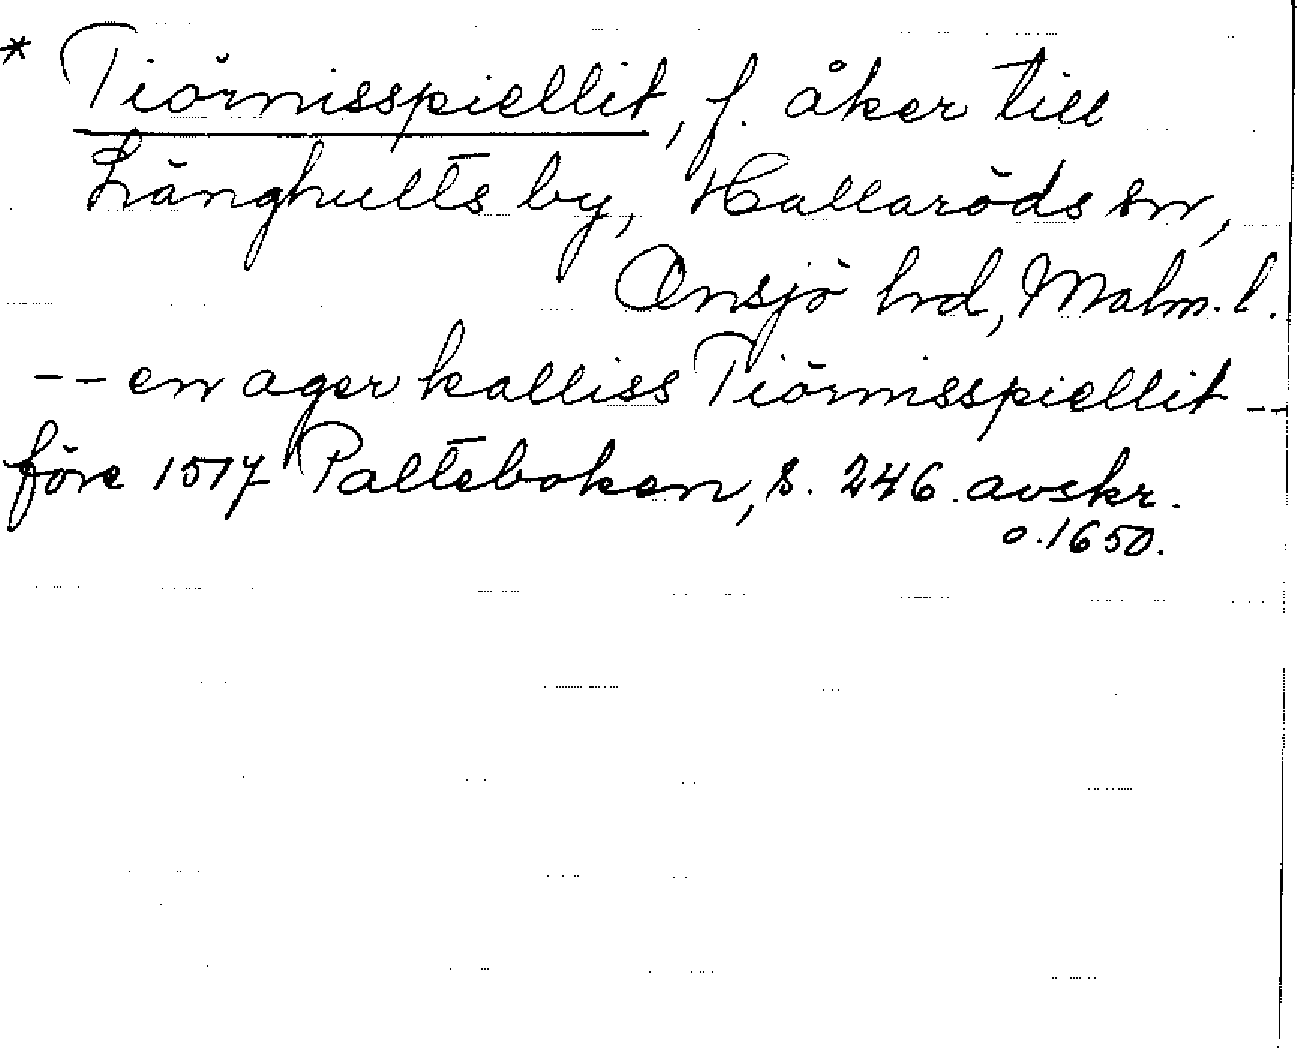 * Tiörnisspiellit, f. åker till
Långhults by, Hallaröds sn,
Onsjö hrd, Malm. l.
-- en ager kalliss Tiörnisspiellit --
före 1517 Palteboken, s. 246. avskr.
o. 1650.